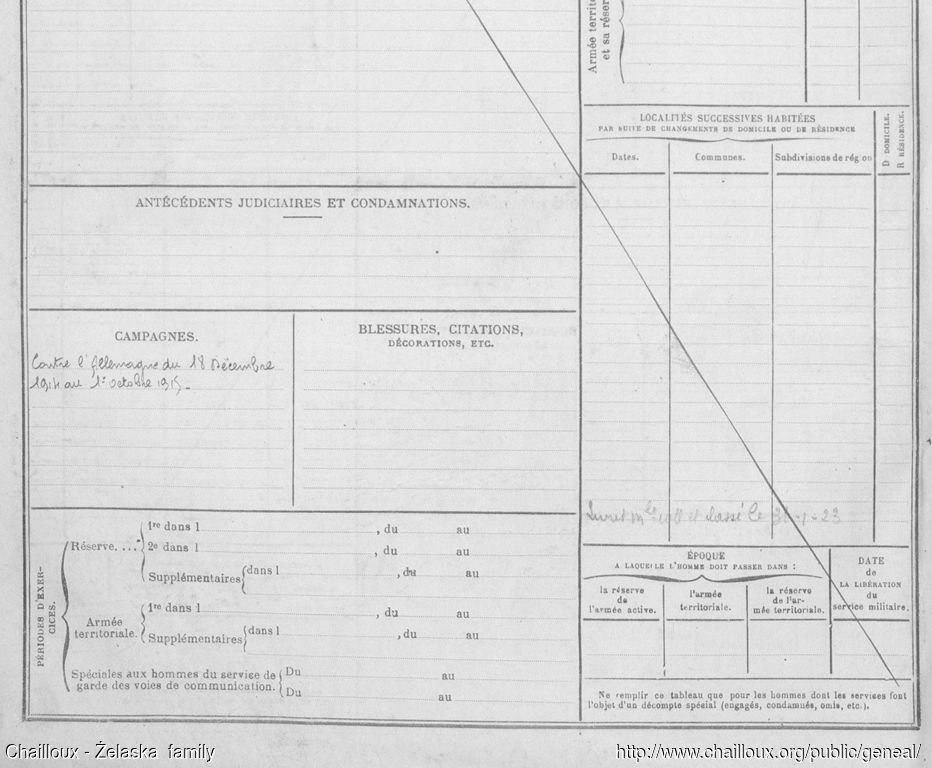 Armée territo
et sa réser
LOCALITÉS SUCCESSIVES HABITÉES
PAR SUITE DE CHANGEMENTS DE DOMICILE OU DE RÉSIDENCE
Dates. Communes. Subdivisions de région
D DOMICILE.
R RÉSIDENCE.
ANTÉCÉDENTS JUDICIAIRES ET CONDAMNATIONS.
CAMPAGNES.
Contre l'Allemagne du 18 Décembre
1914 au 1er octobre 1915.
BLESSURES, CITATIONS,
DÉCORATIONS, ETC.
Livret et classé le 31-1-23
PÉRIODES D'EXER-
CICES.
Réserve. ...
1re dans l , du au
2e dans l , du au
Supplémentaires dans l , du au
Armée
territoriale.
1re dans l , du au
Supplémentaires dans l , du au
Spéciales aux hommes du service de
garde des voies de communication.
Du au
Du au
ÉPOQUE
A LAQUELLE L'HOMME DOIT PASSER DANS :
la réserve
de
l'armée active.
l'armée
territoriale.
la réserve
de l'ar-
mée territoriale.
DATE
de
LA LIBÉRATION
du
service militaire.
Ne remplir ce tableau que pour les hommes dont les services font
l'objet d'un décompte spécial (engagés, condamnés, omis, etc.).
Chailloux - Żelaska family
http://www.chailloux.org/public/geneal/